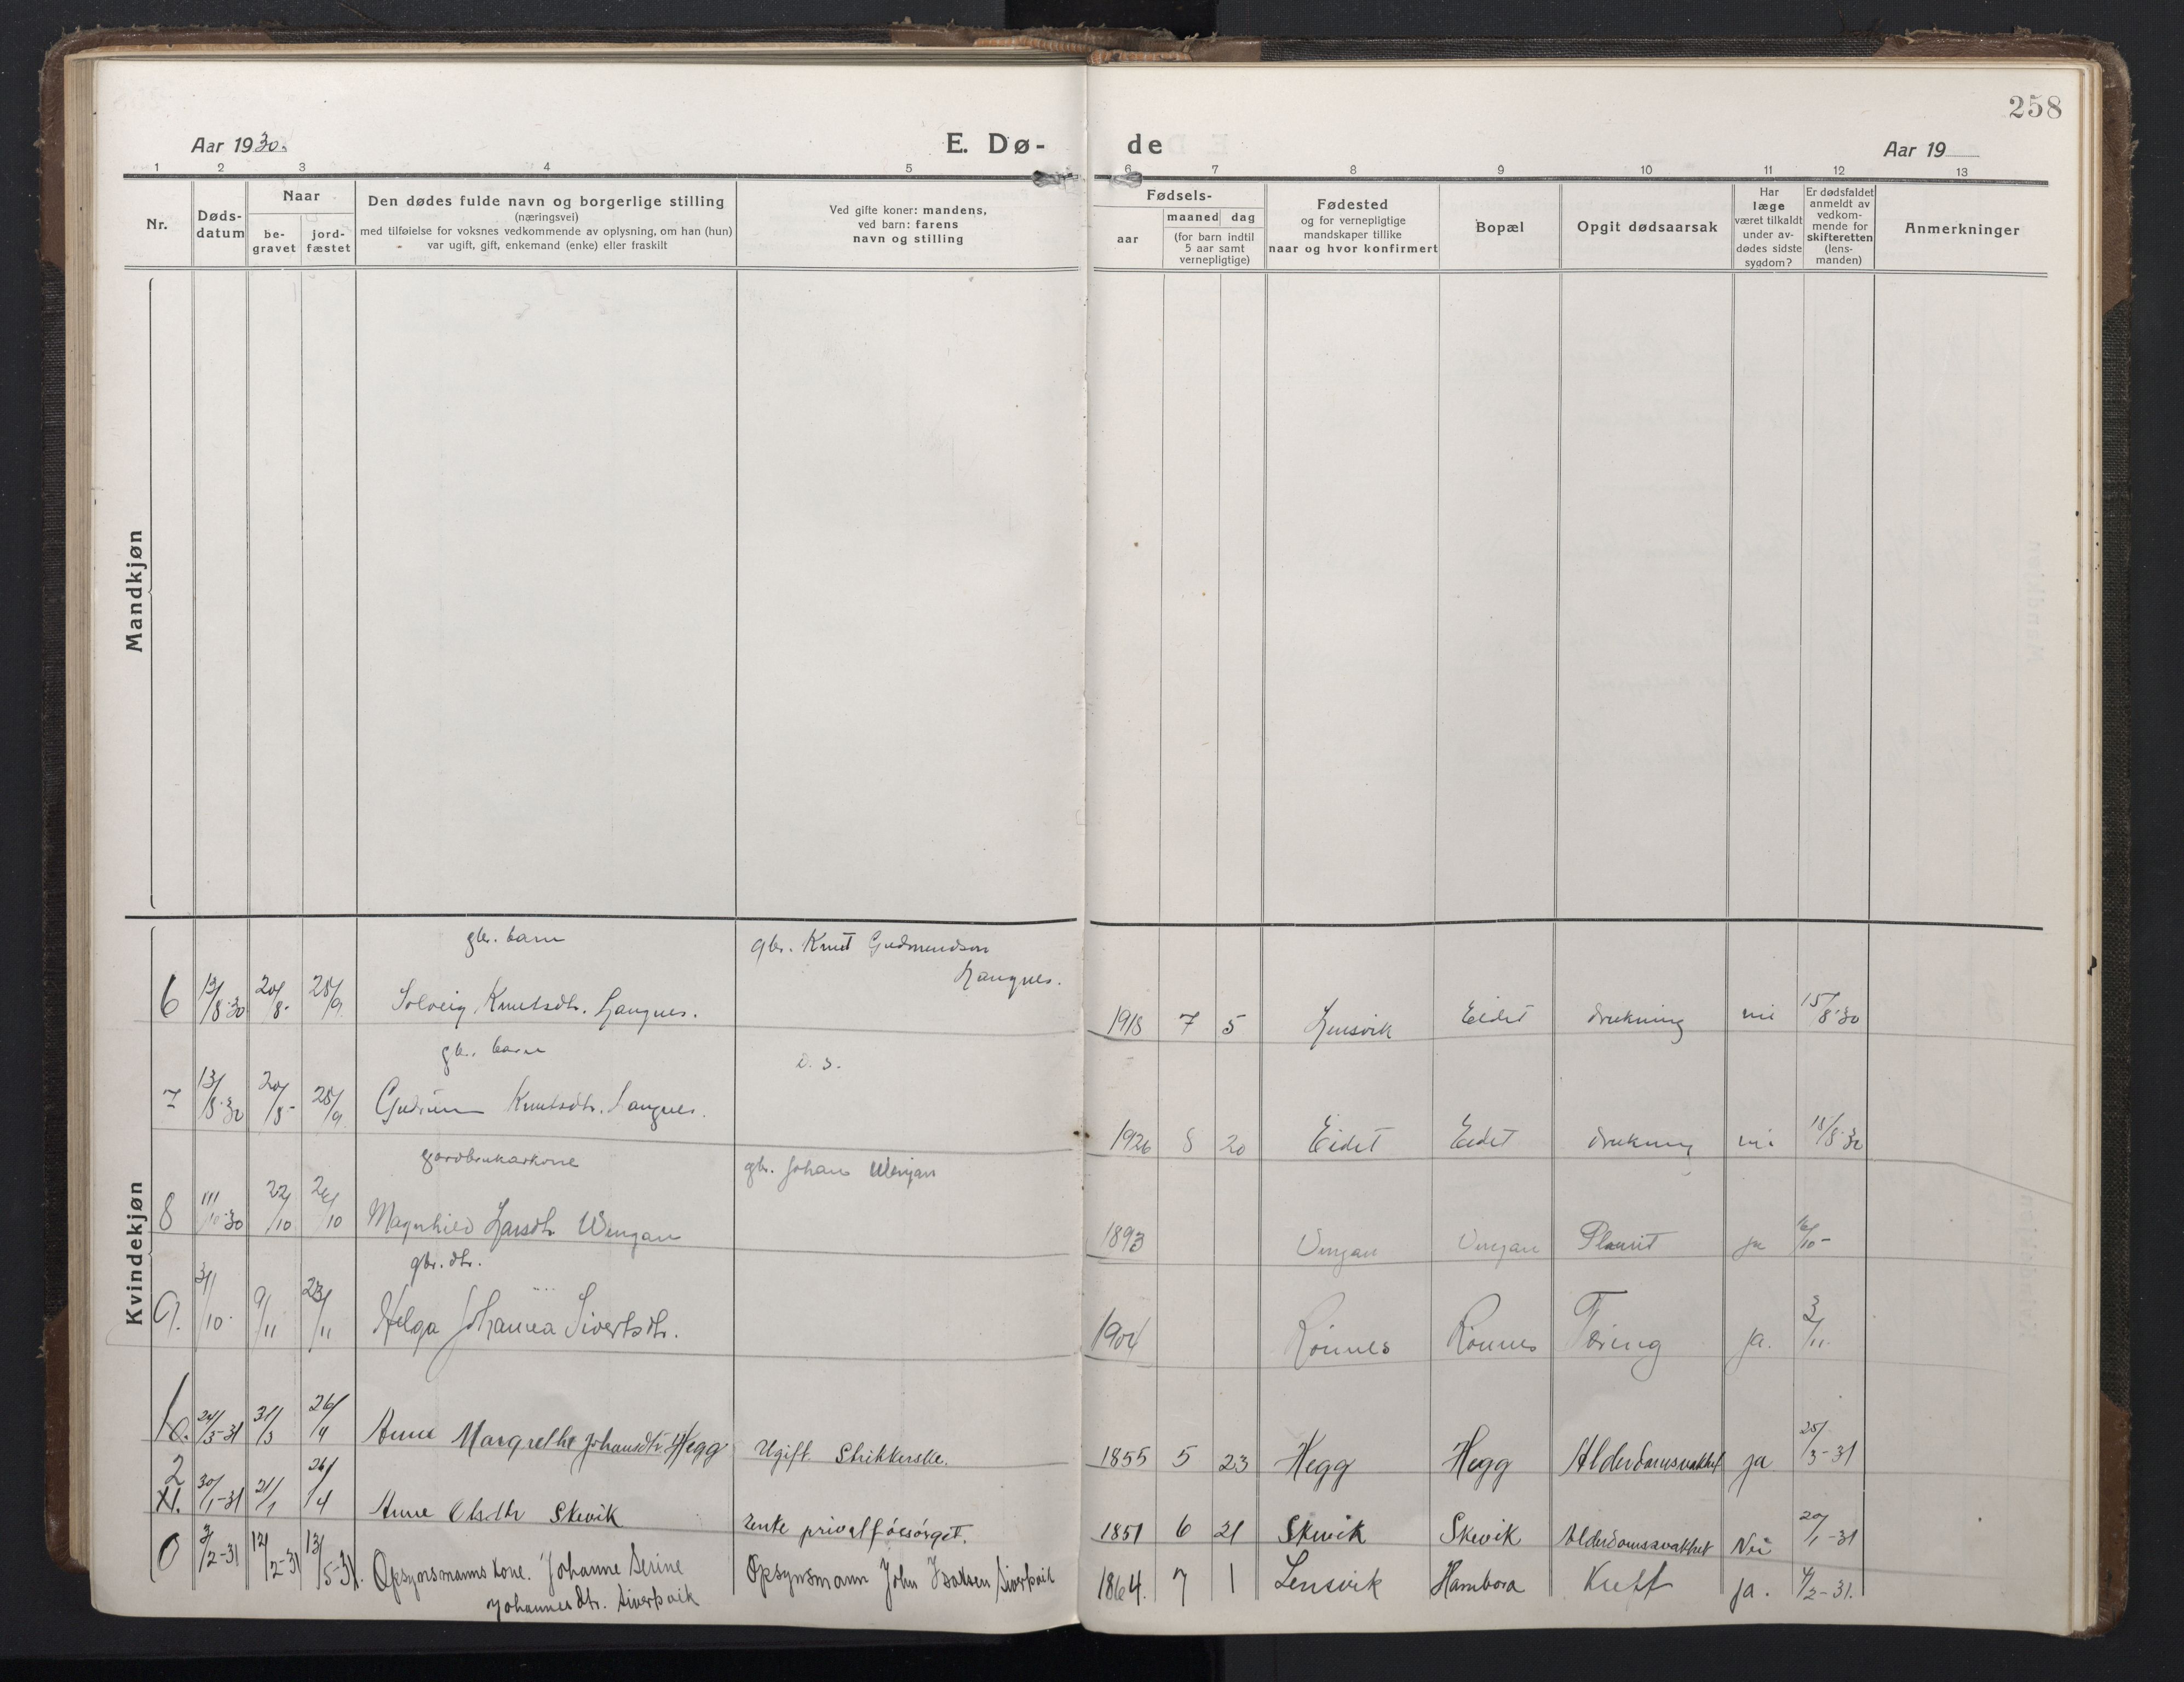 258
Aar 1930.
E. Dø-
de
Aar 19
1 2 3 4 5 6 7 8 9 10 11 12 13
Nr.
Døds-
datum
Naar
be-
gravet
jord-
fæstet
Den dødes fulde navn og borgerlige stilling
(næringsvei)
med tilføielse for voksnes vedkommende av oplysning, om han (hun)
var ugift, gift, enkemand (enke) eller fraskilt
Ved gifte koner: mandens,
ved barn: farens
navn og stilling
Fødsels-
aar
maaned dag
(for barn indtil
5 aar samt
vernepligtige)
Fødested
og for vernepligtige
mandskaper tillike
naar og hvor konfirmert
Bopæl
Opgit dødsaarsak
Har
læge
været tilkaldt
under av-
dødes sidste
sygdom?
Er dødsfaldet
anmeldt av
vedkom-
mende for
skifteretten
(lens-
manden)
Anmerkninger
Mandkjøn
Kvindekjøn
gbr. barn
gbr. Knut Gudmundson
Langnes.
6 13/8-30 20/8- 28/9 Solveig Knutsdtr. Langnes. 1918 7 5 Lensvik Eidet drukning nei 15/8-30
gbr. barn
D. s.
7 13/8-30 20/8- 28/9 Gudrun Knutsdtr. Langnes. 1926 8 20 Eidet Eidet drukning nei 15/8-30
gardbrukarkone
gbr. Johan Wengan
8 11/10-30 22/10 26/10 Magnhild Larsdtr Wengan 1893 Vengan Vengan Pleurit ja 16/10-
gbr. dtr.
9. 31/10- 9/11 23/11 Helga Johanna Sivertsdtr. 1904 Rönnes Rönnes Tæring ja. 3/11-
10. 24/3-31 31/3 26/4 Anne Margrethe Johansdtr. Hegg Ugift Strikkerske. 1855 5 23 Hegg Hegg Alderdomsvakhet ja 25/3-31
2
11. /1-31 21/1 26/4 Anne Olsdtr Skevik Enke privat försörget. 1851 6 21 Skevik Skevik Alderdomssvakhet Nei 20/1-31
0 3/2-31 12/2-31 13/5-31. Opsynsmanns Kone. Johanne Serine Opsynsmann John Isaksen Siverpvik 1864. 7 1 Lensvik Hambora Kreft ja. 4/2-31.
Johannesdtr. Siverpvik